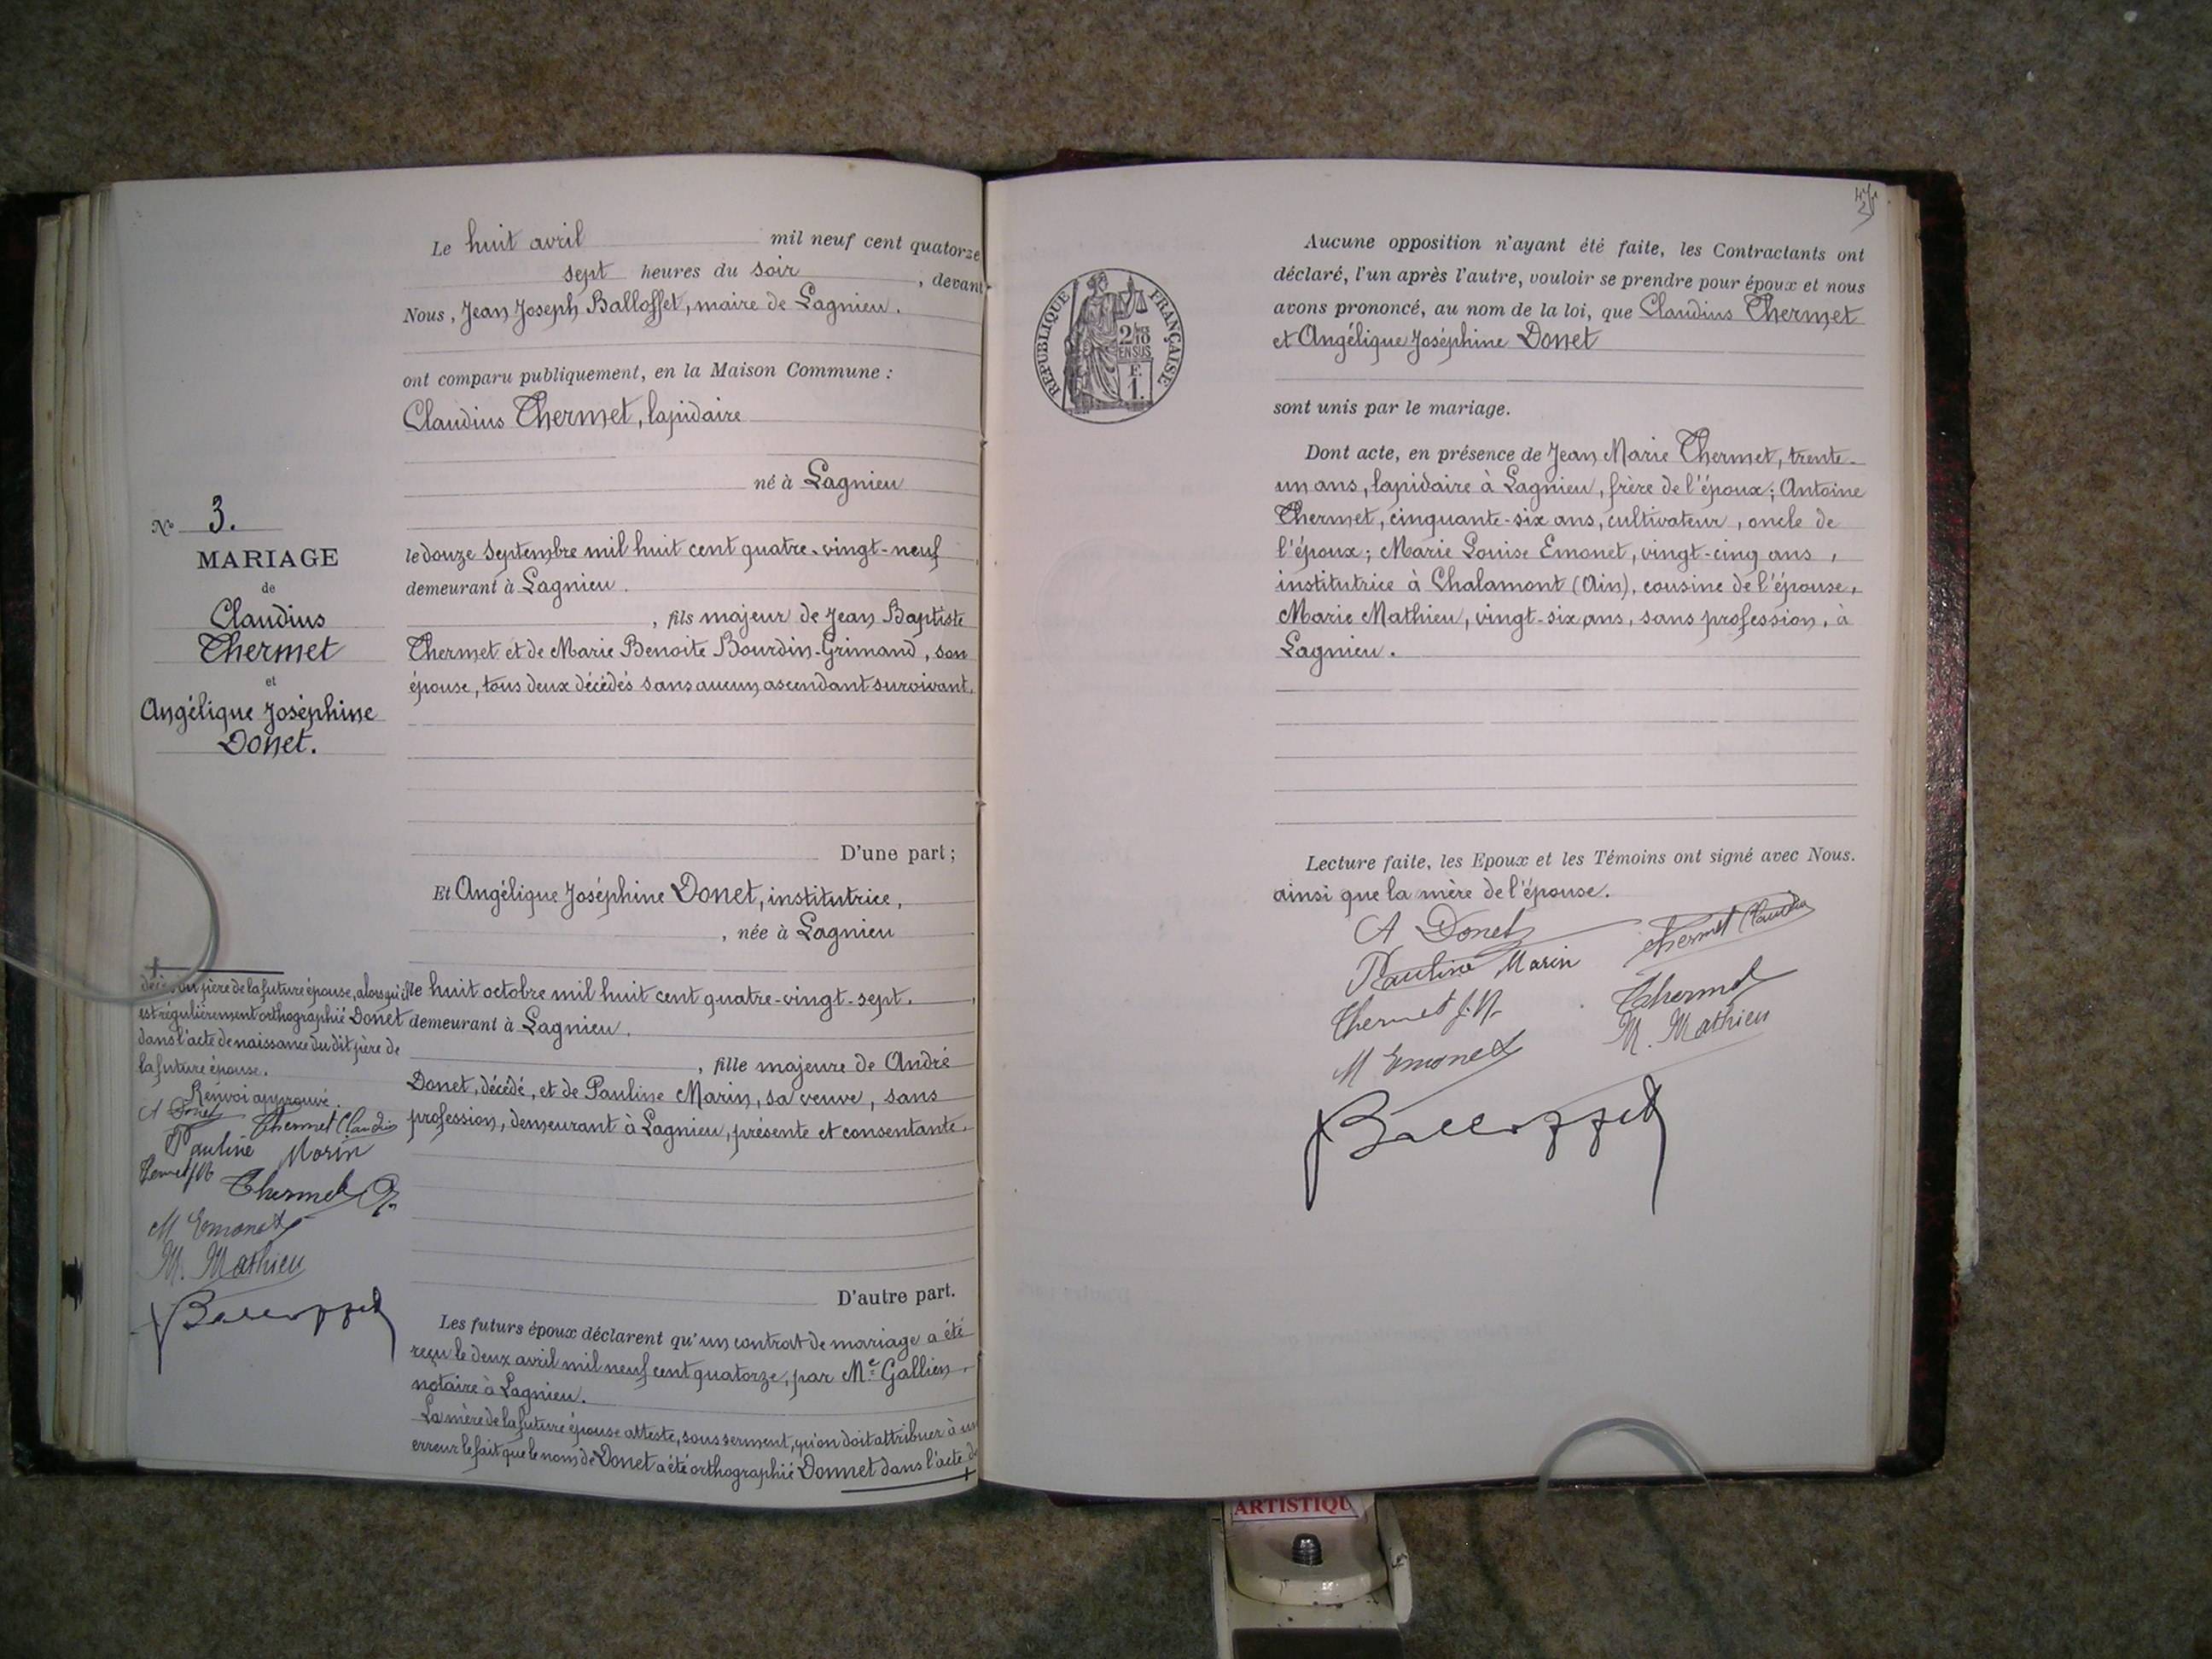 Le huit avril mil neuf cent quatorze
sept heures du soir, devant
Nous, Jean Joseph Balloffet, maire de Lagnieu.
ont comparu publiquement, en la Maison Commune :
Claudius Thermet, lapidaire
né à Lagnieu
le douze septembre mil huit cent quatre-vingt-neuf
demeurant à Lagnieu.
, fils majeur de Jean Baptiste
Thermet et de Marie Benoite Bourdin-Grimand, son
épouse, tous deux décédés sans aucun ascendant survivant.
D'une part ;
Et Angélique Joséphine Donet, institutrice,
, née à Lagnieu
le huit octobre mil huit cent quatre-vingt-sept.
demeurant à Lagnieu.
, fille majeure de André
Donet, décédé, et de Pauline Marin, sa veuve, sans
profession, demeurant à Lagnieu, présente et consentante.
D'autre part.
Les futurs époux déclarent qu'un contrat de mariage a été
reçu le deux avril mil neuf cent quatorze, par Me Gallien,
notaire à Lagnieu.
La mère de la future épouse atteste, sous serment, qu'on doit attribuer à un
erreur le fait que le nom de Donet a été orthographié Donnet dans l'acte de
N° 3.
MARIAGE
de
Claudius
Thermet
et
Angélique Joséphine
Donet.
décès du père de la future épouse, alors qu'il
est régulièrement orthographié Donet
dans l'acte de naissance du dit père de
la future épouse.
Renvoi approuvé.
A Donet Thermet Claudius
Pauline Marin
Thermet
Thermet
M Emonet
M. Mathieu
Balloffet
Aucune opposition n'ayant été faite, les Contractants ont
déclaré, l'un après l'autre, vouloir se prendre pour époux et nous
avons prononcé, au nom de la loi, que Claudius Thermet
et Angélique Joséphine Donet
sont unis par le mariage.
Dont acte, en présence de Jean Marie Thermet, trente-
un ans, lapidaire à Lagnieu, frère de l'époux ; Antoine
Thermet, cinquante-six ans, cultivateur, oncle de
l'époux ; Marie Louise Emonet, vingt-cinq ans,
institutrice à Chalamont (Ain), cousine de l'épouse,
Marie Mathieu, vingt-six ans, sans profession, à
Lagnieu.
Lecture faite, les Epoux et les Témoins ont signé avec Nous.
ainsi que la mère de l'épouse.
A Donet Thermet Claudius
Pauline Marin
Thermet
Thermet J.M.
M. Mathieu
M Emonet
Balloffet
RÉPUBLIQUE FRANÇAISE
2/10
EN SUS
F.
1.
ARTISTIQU